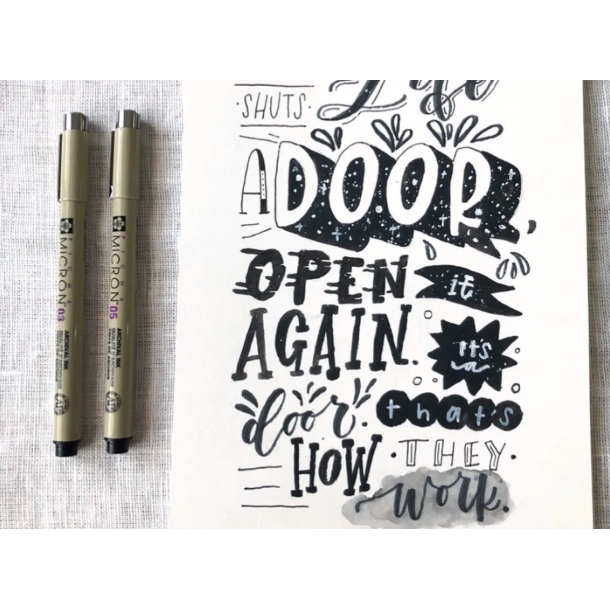 Life
·SHUTS·
A DOOR,
OPEN it
AGAIN. It's a
door. thats
HOW ·THEY·
work.
MICRON 03
ARCHIVAL INK
MICRON 05
ARCHIVAL INK